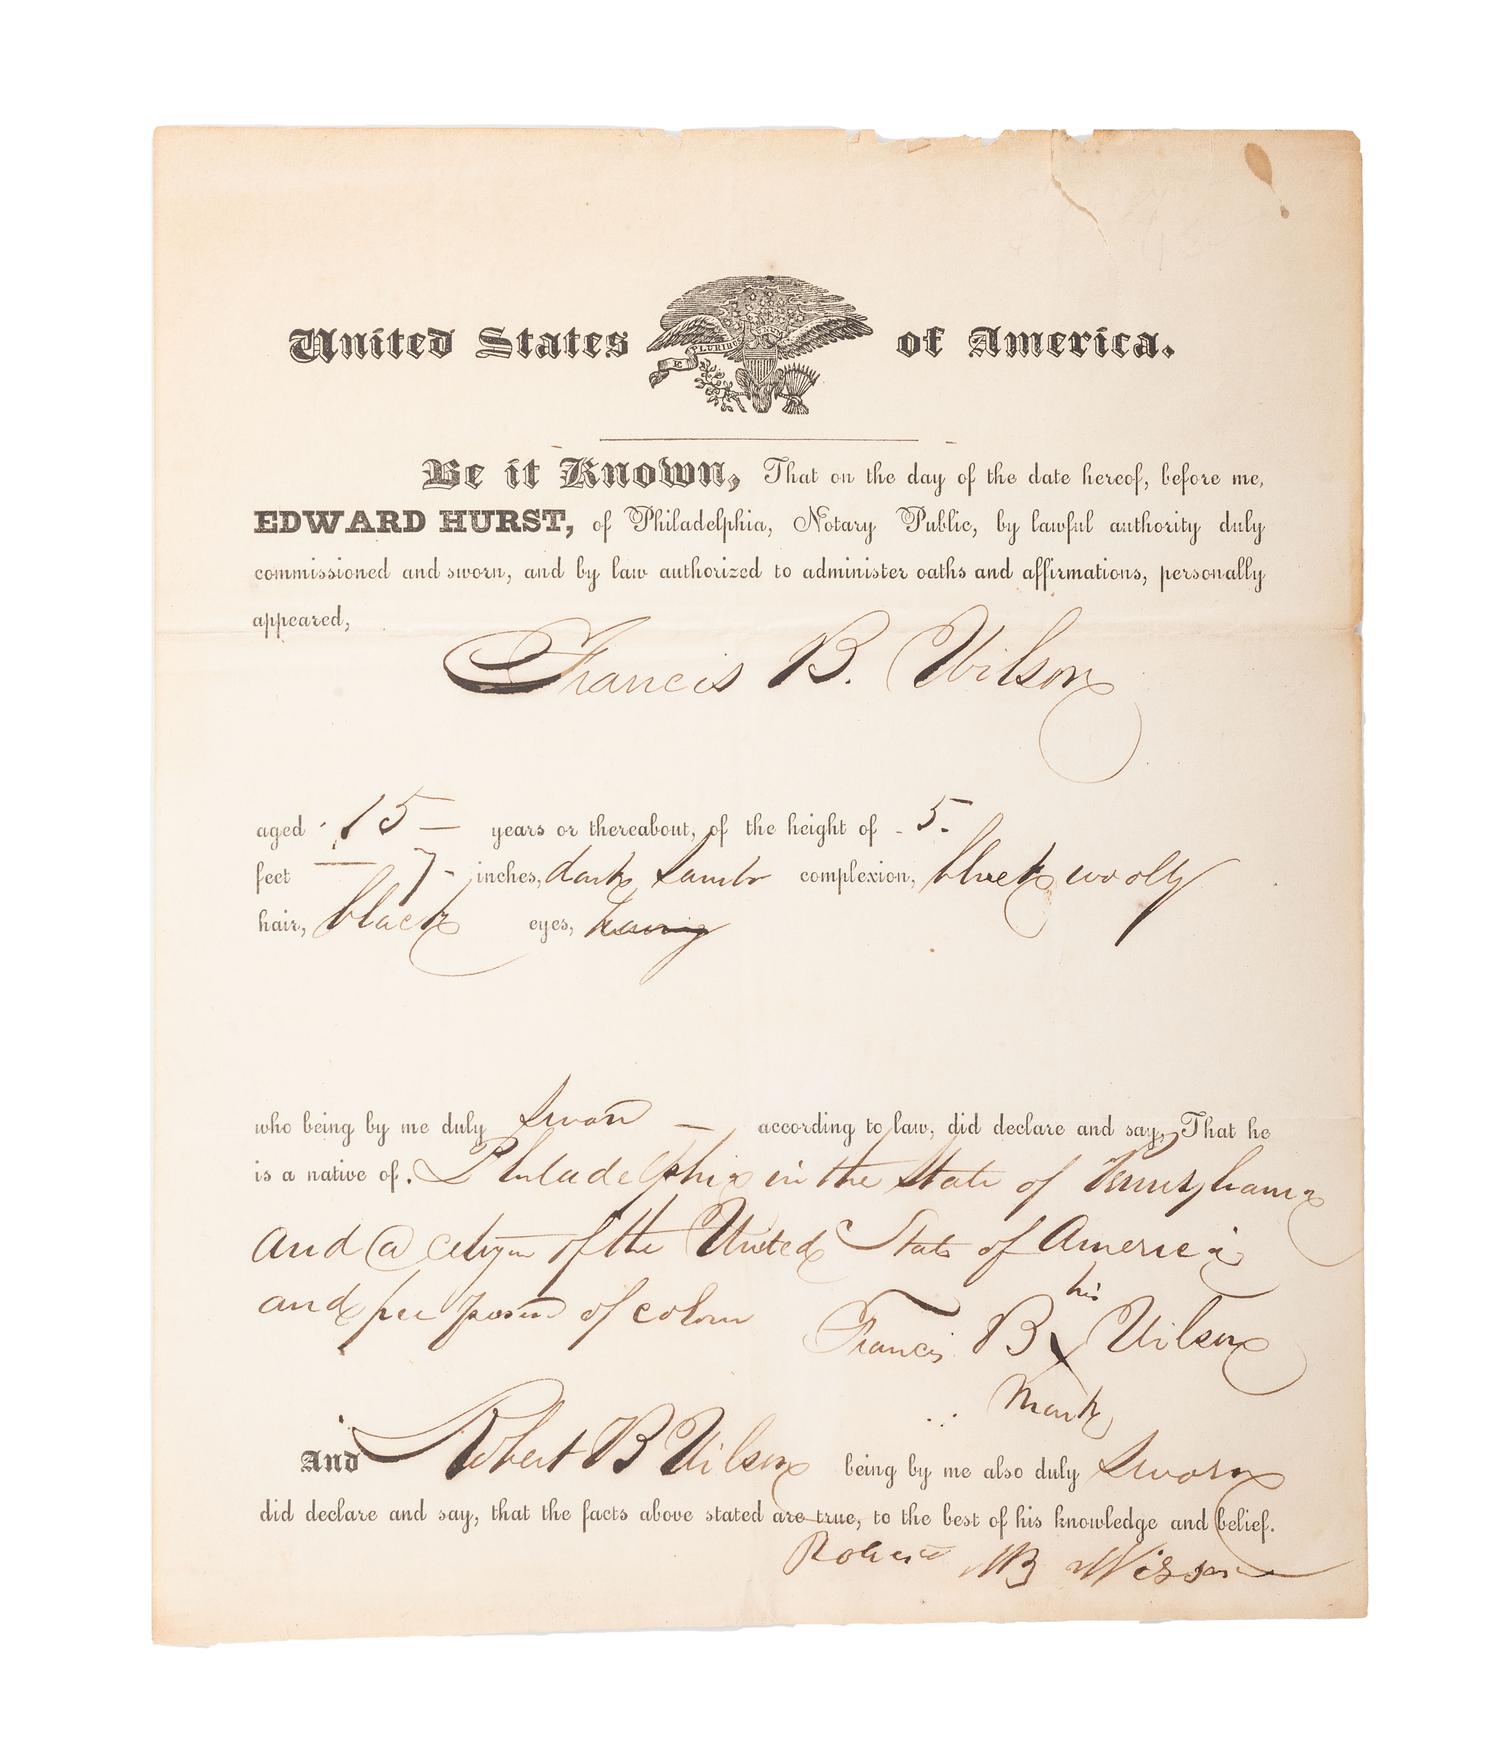 United States of America.
E PLURIBUS UNUM
Be it Known, That on the day of the date hereof, before me,
EDWARD HURST, of Philadelphia, Notary Public, by lawful authority duly
commissioned and sworn, and by law authorized to administer oaths and affirmations, personally
appeared,
Francis B. Wilson
aged 15 — years or thereabout, of the height of 5.
feet 7 - inches, dark Sambo complexion, black woolly
hair, black eyes, having
who being by me duly sworn — according to law, did declare and say, That he
is a native of. Philadelphia in the State of Pennsylvania
and a citizen of the United State of America
and free person of colour
his
Francis B x Wilson
Mark
And Robert B Wilson being by me also duly sworn
did declare and say, that the facts above stated are true, to the best of his knowledge and belief.
Robert B Wilson